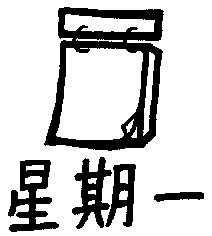 星期一